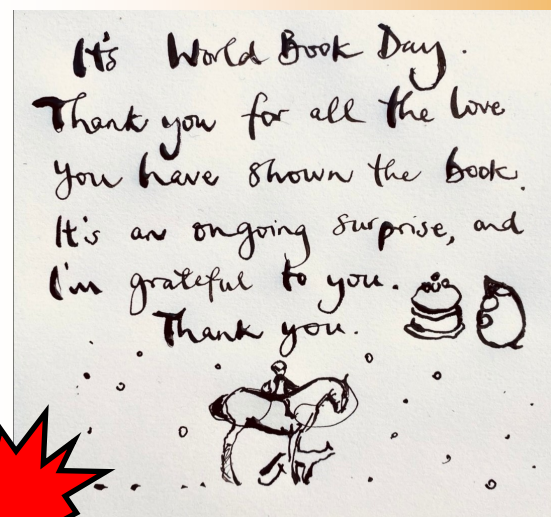 It's World Book Day.
Thank you for all the love
you have shown the book.
It's an ongoing surprise, and
I'm grateful to you.
Thank you.